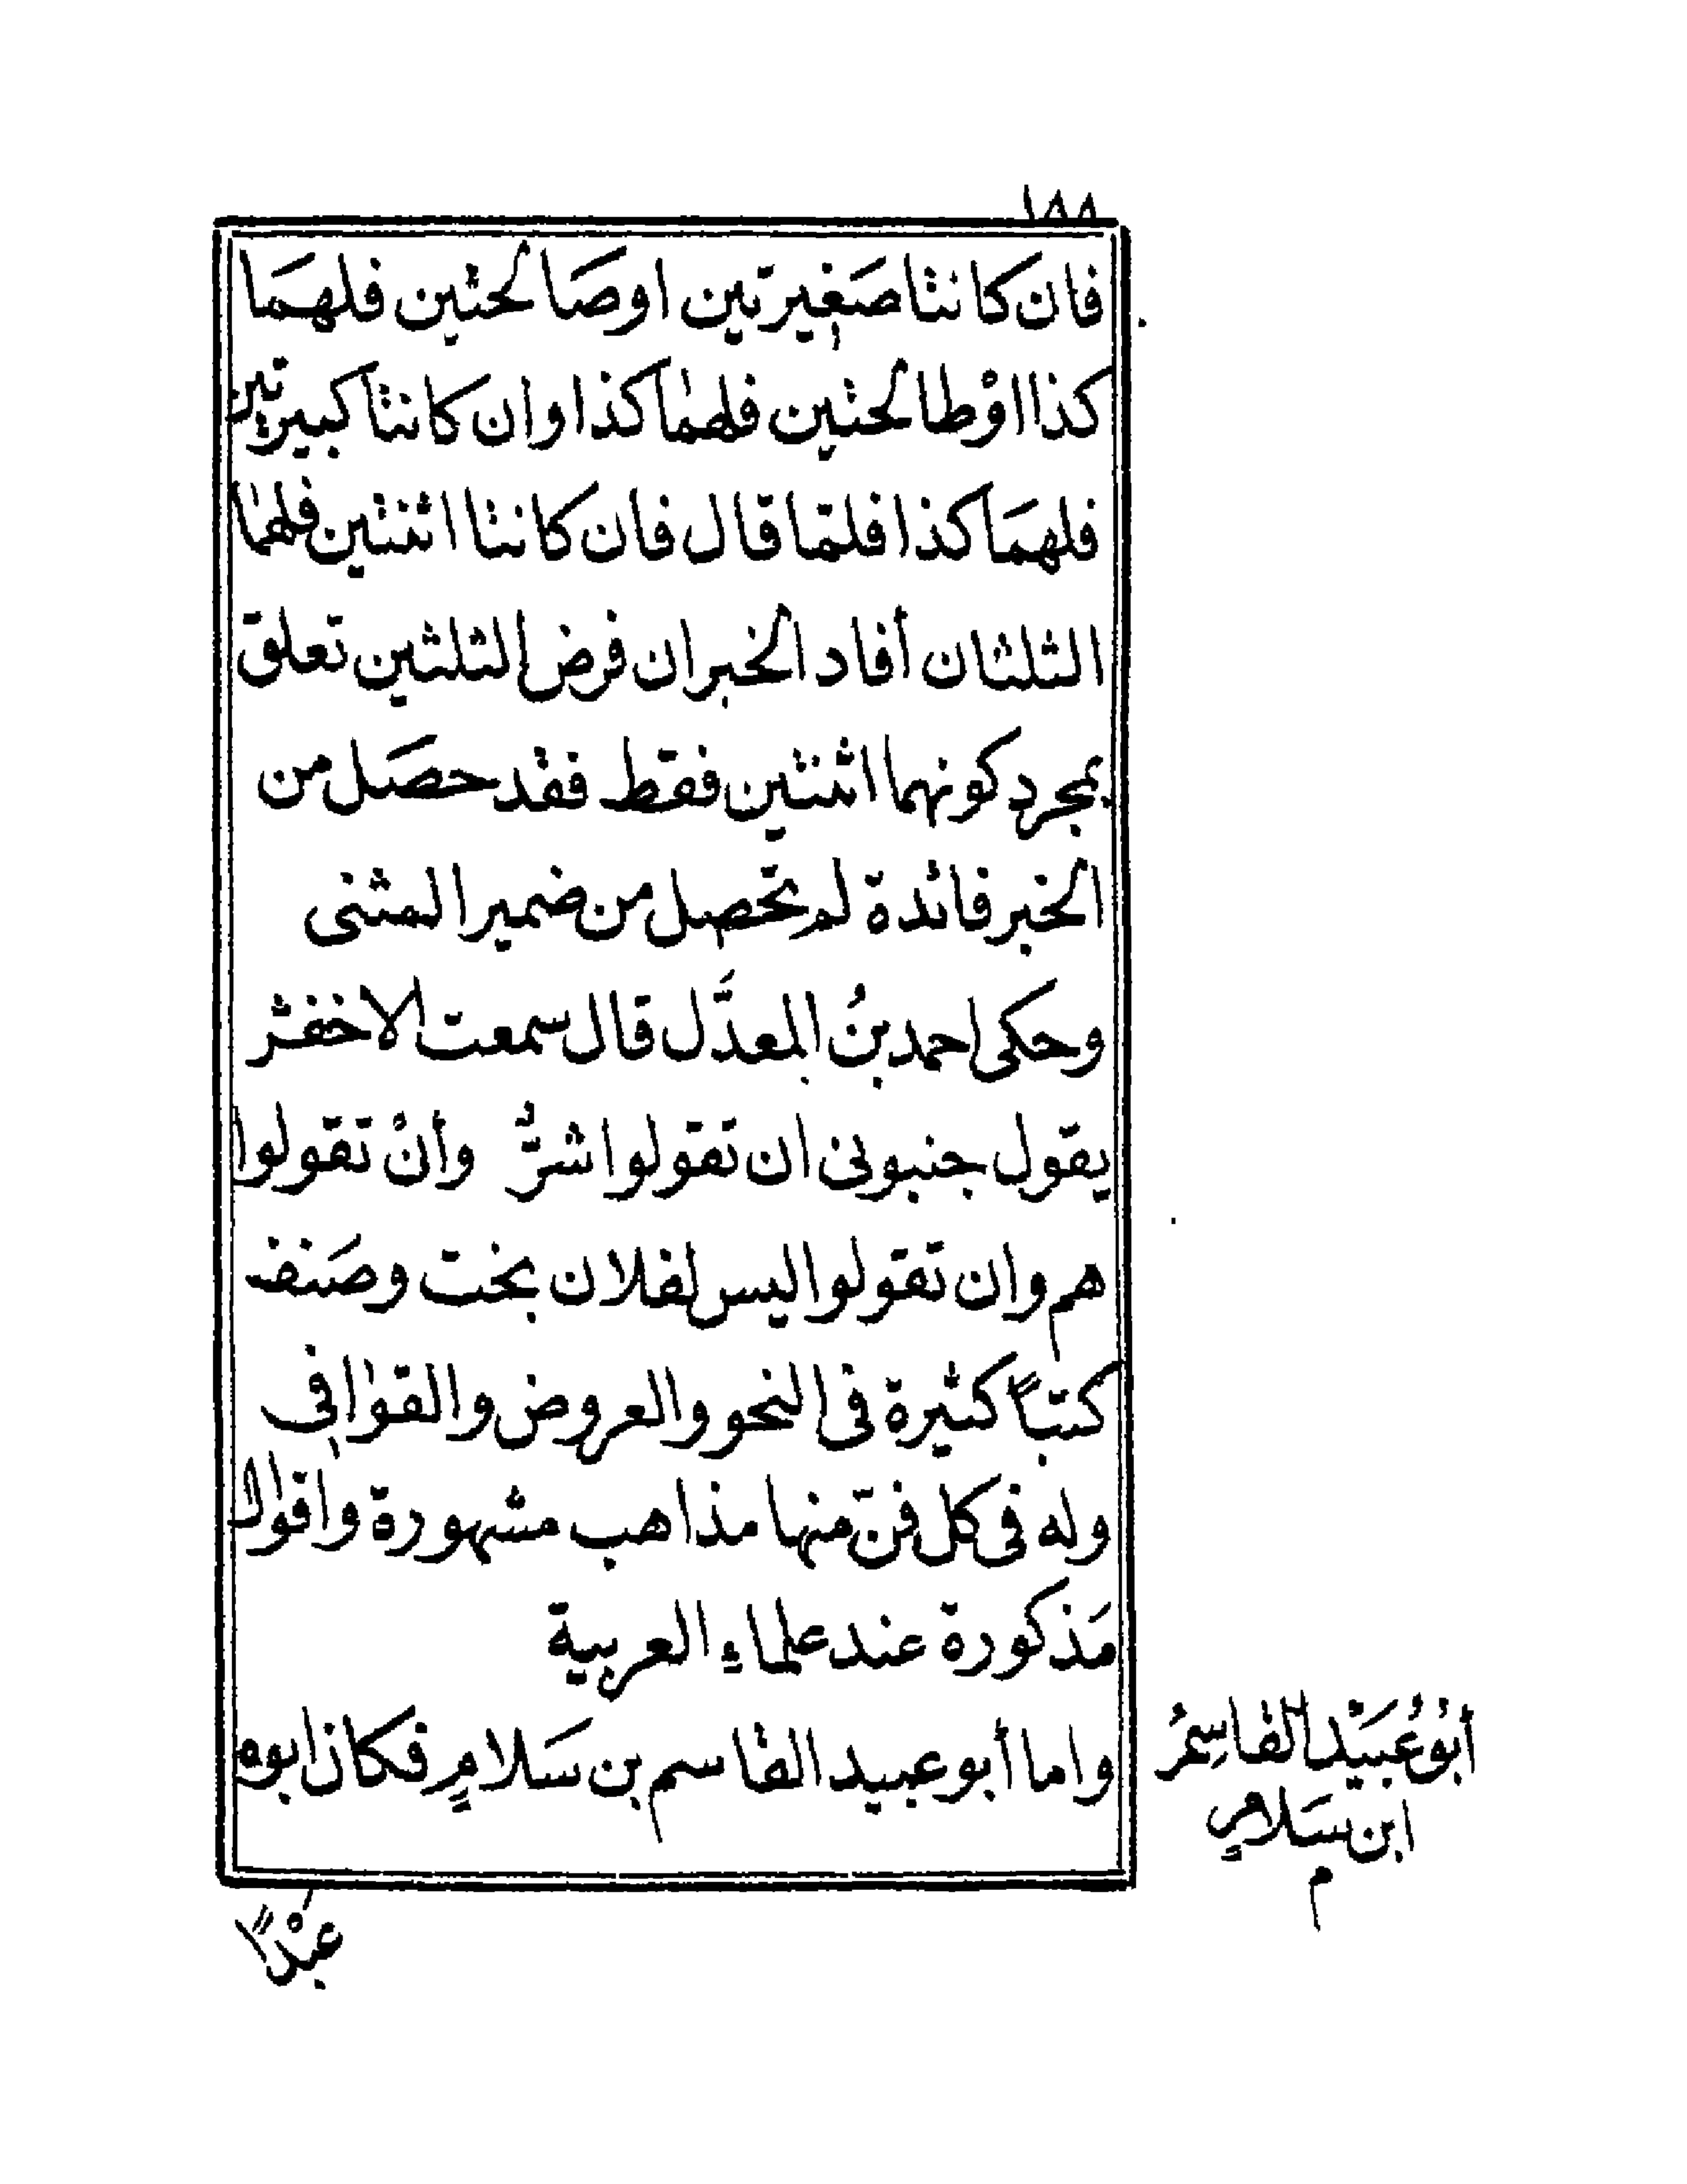 ١٨٨
فان كانتا صَغيرتين اوصَالحتين فلهمَا
كذا اوْطالحتين فلهما كذا وان كانتا كبيرتين
فلهمَا كذا فلمّا قال فان كانتا اثنتين فلهما
الثلثان أفاد الخبر ان فرض الثلثين تعلق
بمجرد كونهما اثنتين فقط فقد حصَل من
الخبر فائدة لم تحصل من ضمير المثنى
وحكى احمد بنُ المعدَّل قال سمعت الاخفش
يقول جنبونى ان تقولوا شرٌّ وأنْ تقولوا
هم وان تقولوا ليس لفلان بخت وصَنف
كتباً كثيرة فى النحو والعروض والقوافِى
وله فى كل فنّ منها مذاهب مشهورة واقوال
مَذكورة عند علماءِ العربية
واما أبو عبيد القاسم بن سَلامٍ فكان ابوه
أبُو عُبَيْد القاسِمُ
ابن سَلامٍ
م
عبْداً